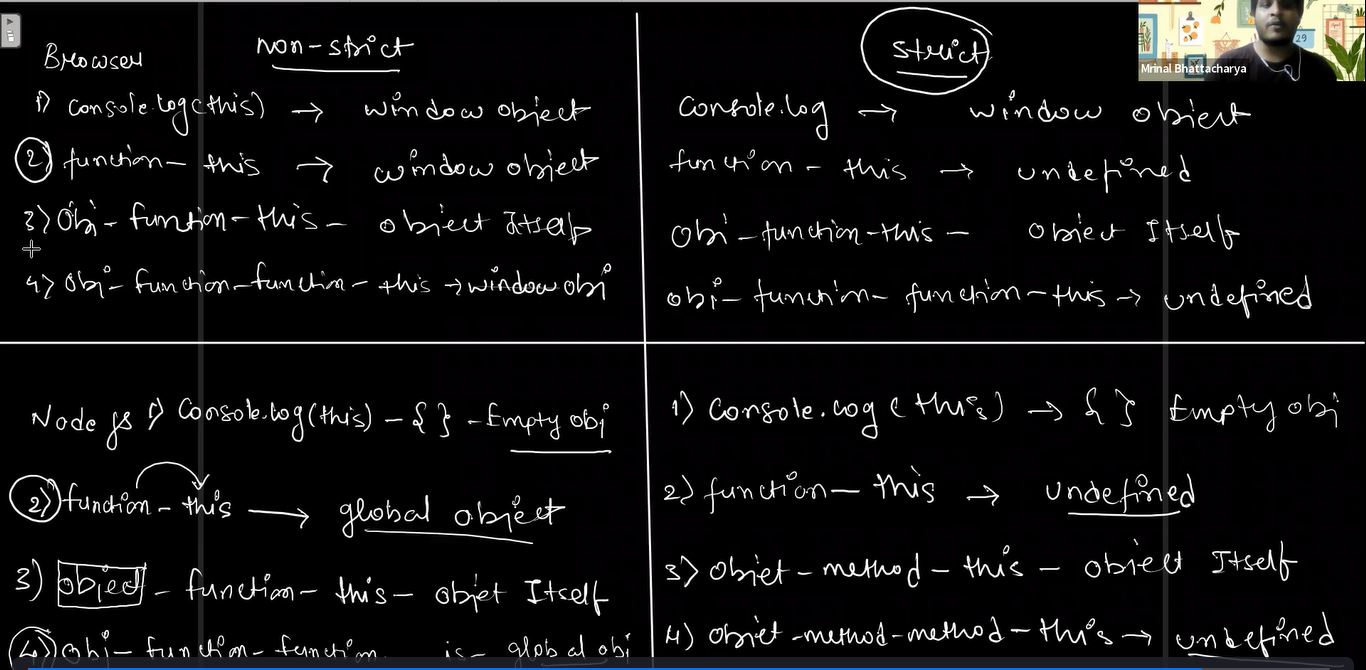 Browser non-strict
1) console.log(this) → window object
2) function - this → window object
3) Obj - funtion - this - object Itself
4) Obj - function - function - this → window obj
strict
console.log → window object
function - this → undefined
Obj - function - this - object Itself
obj - function - function - this → undefined
Mrinal Bhattacharya
29
Node js 1) Console.log(this) - { } - Empty obj
2) function - this → global object
3) object - function - this - objet Itself
4) obj - function - function is - global obj
1) Console.log(this) → { } Empty obj
2) function - this → undefined
3) Objet - method - this - object Itself
4) Objet - method - method - this → undefined